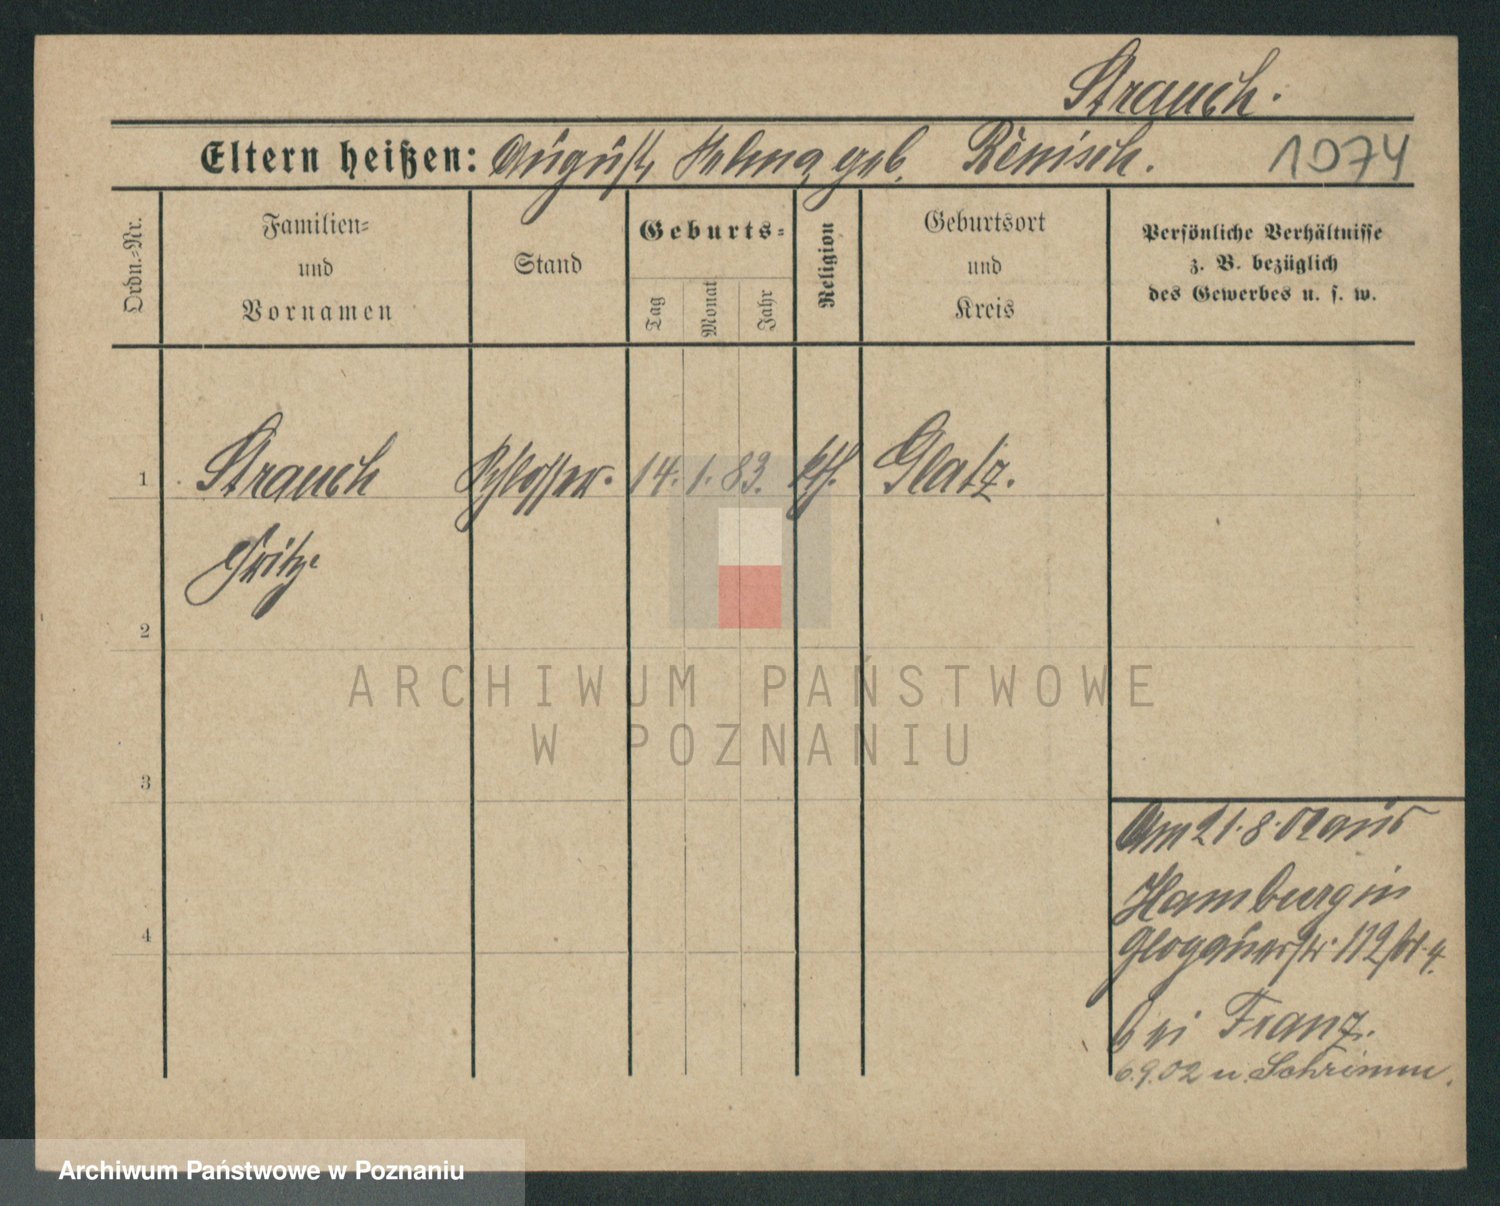 Strauch.
Eltern heißen: August, Selma, geb. Rönisch. 1074
Ordn.=Nr.
Familien=
und
Vornamen
Stand
Geburts=
Tag
Monat
Jahr
Religion
Geburtsort
und
Kreis
Persönliche Verhältnisse
z. B. bezüglich
des Gewerbes u. s. w.
1 Strauch Schlosser. 14. 1. 83. kth. Glatz.
Fritz.
2
3
4
Am 21.8.02 aus
Hamburg in
Glogauerstr. 112
bei Franz.
6.9.02 n. Schrimm.
ARCHIWUM PAŃSTWOWE
W POZNANIU
Archiwum Państwowe w Poznaniu